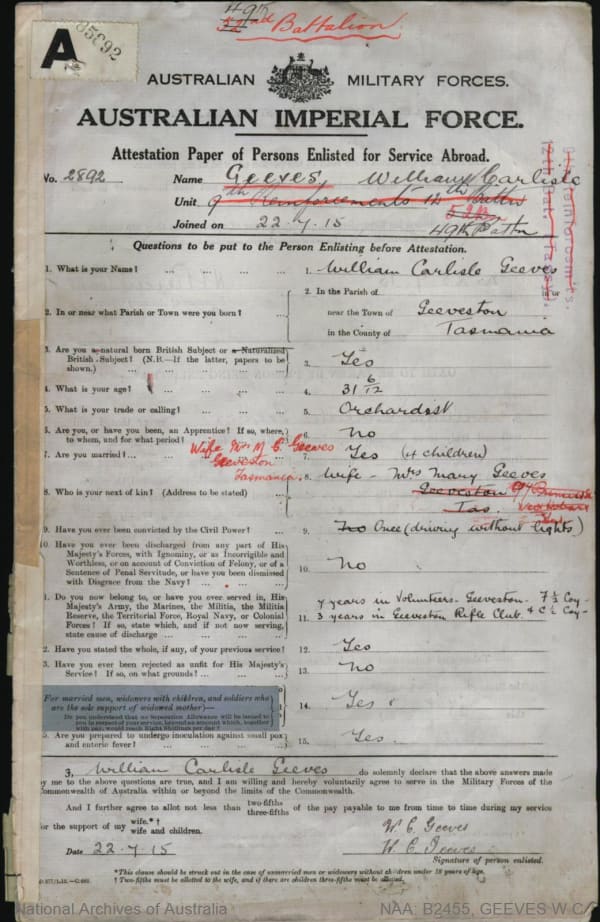 49th
52nd Battalion
A
85692
AUSTRALIAN MILITARY FORCES.
AUSTRALIAN IMPERIAL FORCE.
Attestation Paper of Persons Enlisted for Service Abroad.
No. 2892 Name Geeves, William Carlisle
Unit 9th Reinforcements 12th Battn
52 Bn
Joined on 22.7.15 49th Battn
Questions to be put to the Person Enlisting before Attestation.
1. What is your Name? ... ... ... 1. William Carlisle Geeves
2. In or near what Parish or Town were you born? ... 2. In the Parish of or
near the Town of Geeveston
in the County of Tasmania
3. Are you a natural born British Subject or a Naturalized
British Subject? (N.B.—If the latter, papers to be
shown.) 3. Yes
4. What is your age? 4. 31 6/12
5. What is your trade or calling? 5. Orchardist
6. Are you, or have you been, an Apprentice? If so, where,
to whom, and for what period? 6. No
Wife Mrs M C Geeves
Geeveston
Tasmania.
7. Are you married? 7. Yes (4 children)
8. Who is your next of kin? (Address to be stated) 8. Wife - Mrs Mary Geeves
Geeveston
Tas.
9. Have you ever been convicted by the Civil Power? 9. No Once (driving without lights)
10. Have you ever been discharged from any part of His
Majesty's Forces, with Ignominy, or as Incorrigible and
Worthless, or on account of Conviction of Felony, or of a
Sentence of Penal Servitude, or have you been dismissed
with Disgrace from the Navy? 10. No
1. Do you now belong to, or have you ever served in, His
Majesty's Army, the Marines, the Militia, the Militia
Reserve, the Territorial Force, Royal Navy, or Colonial
Forces? If so, state which, and if not now serving,
state cause of discharge 11. 7 years in Volunteers - Geeveston - F ½ Coy -
3 years in Geeveston Rifle Club & C ½ Coy -
2. Have you stated the whole, if any, of your previous service? 12. Yes
3. Have you ever been rejected as unfit for His Majesty's
Service? If so, on what grounds? 13. No
For married men, widowers with children, and soldiers who
are the sole support of widowed mother)—
Do you understand that no Separation Allowance will be issued to
you in respect of your service, beyond an amount which, together
with pay, would reach Eight Shillings per day? 14. Yes
5. Are you prepared to undergo inoculation against small pox
and enteric fever? 15. Yes
3, William Carlisle Geeves do solemnly declare that the above answers made
by me to the above questions are true, and I am willing and hereby voluntarily agree to serve in the Military Forces of the
Commonwealth of Australia within or beyond the limits of the Commonwealth.
And I further agree to allot not less than two-fifths three-fifths of the pay payable to me from time to time during my service
for the support of my wife.*†
wife and children.
W. C. Geeves
Date 22.7.15 W. C. Geeves
Signature of person enlisted.
*This clause should be struck out in the case of unmarried men or widowers without children under 18 years of age.
† Two-fifths must be allotted to the wife, and if there are children three-fifths must be allotted.
National Archives of Australia NAA: B2455, GEEVES W C